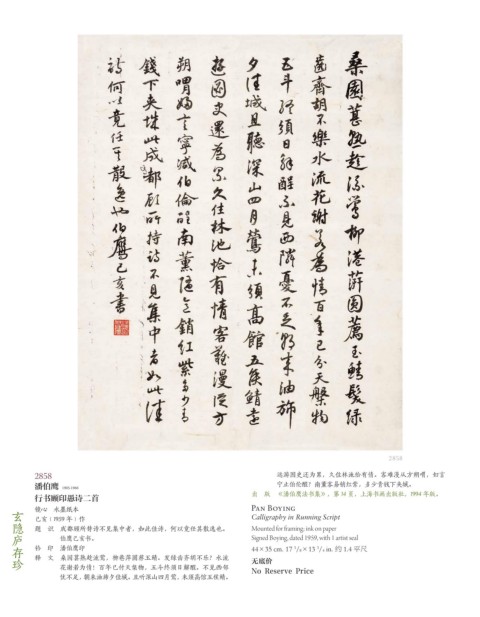 桑園葚熟趁流鶯柳港蓱圓薦玉鯖髮綠
齒齊胡不樂水流花謝若為情百年已分天槃物
五斗終須日解酲不見西隣憂不足朝來油斾
夕佳城且聽深山四月鶯未須高館五侯鯖遠
遊園史還為累久住林池恰有情客難漫從方
朔喟婦言寧減伯倫酲南薰隨意銷紅紫多少青
錢下夾城此成都顧所持詩不見集中者如此佳
詩何以竟任其散逸也伯鷹己亥書
2858
2858
潘伯鹰 1905-1966
行书顾印愚诗二首
镜心 水墨纸本
己亥（1959年）作
题 识 成都顾所持诗不见集中者，如此佳诗，何以竟任其散逸也。
伯鹰己亥书。
钤 印 潘伯鹰印
释 文 桑园葚熟趁流莺，柳巷萍圆荐玉鲭。发绿齿齐胡不乐！水流
花谢若为情！百年已付天槃物，五斗终须日解酲。不见西邻
忧不足，朝来油旆夕佳城。且听深山四月莺，未须高馆五侯鲭。
远游园史还为累，久住林池恰有情。客难漫从方朔喟，妇言
宁止伯伦酲？南薰容易销红紫，多少青钱下夹城。
出 版 《潘伯鹰法书集》，第14页，上海书画出版社，1994年版。
PAN BOYING
Calligraphy in Running Script
Mounted for framing; ink on paper
Signed Boying; dated 1959, with 1 artist seal
44 × 35 cm. 17 ³/₈ × 13 ³/₄ in. 约 1.4 平尺
无底价
No Reserve Price
玄隐庐存珍